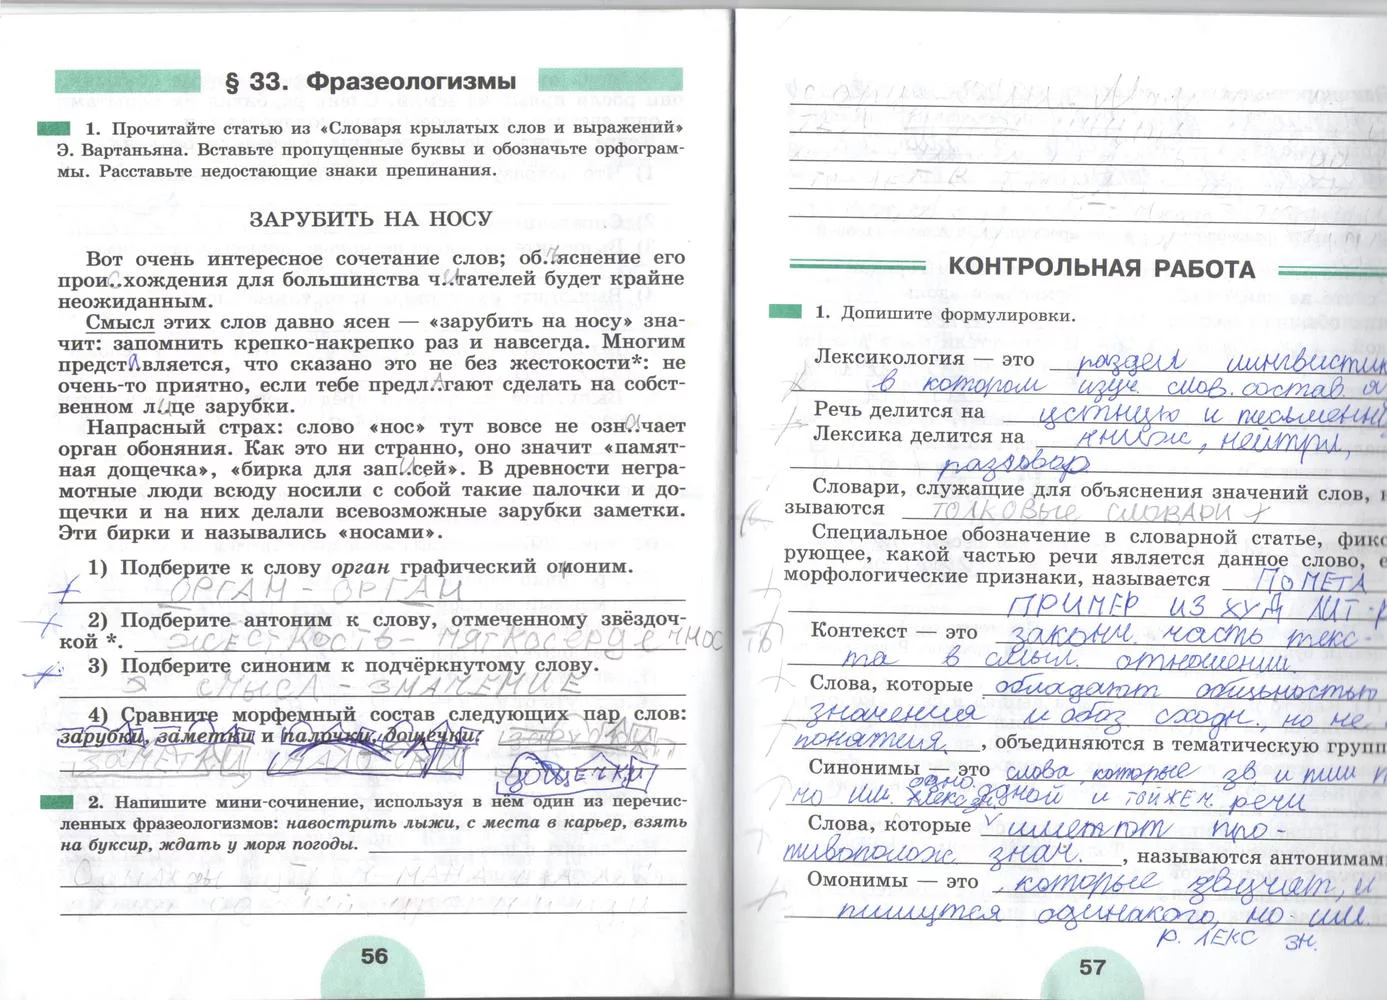 § 33. Фразеологизмы
1. Прочитайте статью из «Словаря крылатых слов и выражений»
Э. Вартаньяна. Вставьте пропущенные буквы и обозначьте орфограм-
мы. Расставьте недостающие знаки препинания.
ЗАРУБИТЬ НА НОСУ
Вот очень интересное сочетание слов; об..ъяснение его
прои..схождения для большинства ч..итателей будет крайне
неожиданным.
Смысл этих слов давно ясен — «зарубить на носу» зна-
чит: запомнить крепко-накрепко раз и навсегда. Многим
представляется, что сказано это не без жестокости*: не
очень-то приятно, если тебе предлагают сделать на собст-
венном лице зарубки.
Напрасный страх: слово «нос» тут вовсе не озн..ачает
орган обоняния. Как это ни странно, оно значит «памят-
ная дощечка», «бирка для зап..исей». В древности негра-
мотные люди всюду носили с собой такие палочки и до-
щечки и на них делали всевозможные зарубки заметки.
Эти бирки и назывались «носами».
1) Подберите к слову орган графический омоним.
ОРГАН - ОРГАН
2) Подберите антоним к слову, отмеченному звёздоч-
кой *. ЖЕСТКОСТЬ - МЯГКОСЕРДЕЧНОСТЬ
3) Подберите синоним к подчёркнутому слову.
СМЫСЛ - ЗНАЧЕНИЕ
4) Сравните морфемный состав следующих пар слов:
зарубки, заметки и палочки, дощечки.
ЗАМЕТКИ ПАЛОЧКИ ДОЩЕЧКИ
2. Напишите мини-сочинение, используя в нём один из перечис-
ленных фразеологизмов: навострить лыжи, с места в карьер, взять
на буксир, ждать у моря погоды.
56
КОНТРОЛЬНАЯ РАБОТА
1. Допишите формулировки.
Лексикология — это раздел лингвистик
в котором изуч. слов. состав я
Речь делится на устную и письменн
Лексика делится на книжн, нейтрл,
разговор
Словари, служащие для объяснения значений слов, н
зываются ТОЛКОВЫЕ СЛОВАРИ
Специальное обозначение в словарной статье, фикс
рующее, какой частью речи является данное слово, е
морфологические признаки, называется ПОМЕТА
ПРИМЕР ИЗ ХУД ЛИТ-Р
Контекст — это законч. часть текс-
та в смысл. отношении
Слова, которые обладают общностью
значения и обоз сходн., но не
понятия, объединяются в тематическую групп
Синонимы — это слова которые зв и пиш
но им. одной и той же ч. речи
Слова, которые имеют про-
тивополож знач., называются антонимам
Омонимы — это которые звучат, и
пишутся одинакого, но им.
р. ЛЕКС ЗН.
57